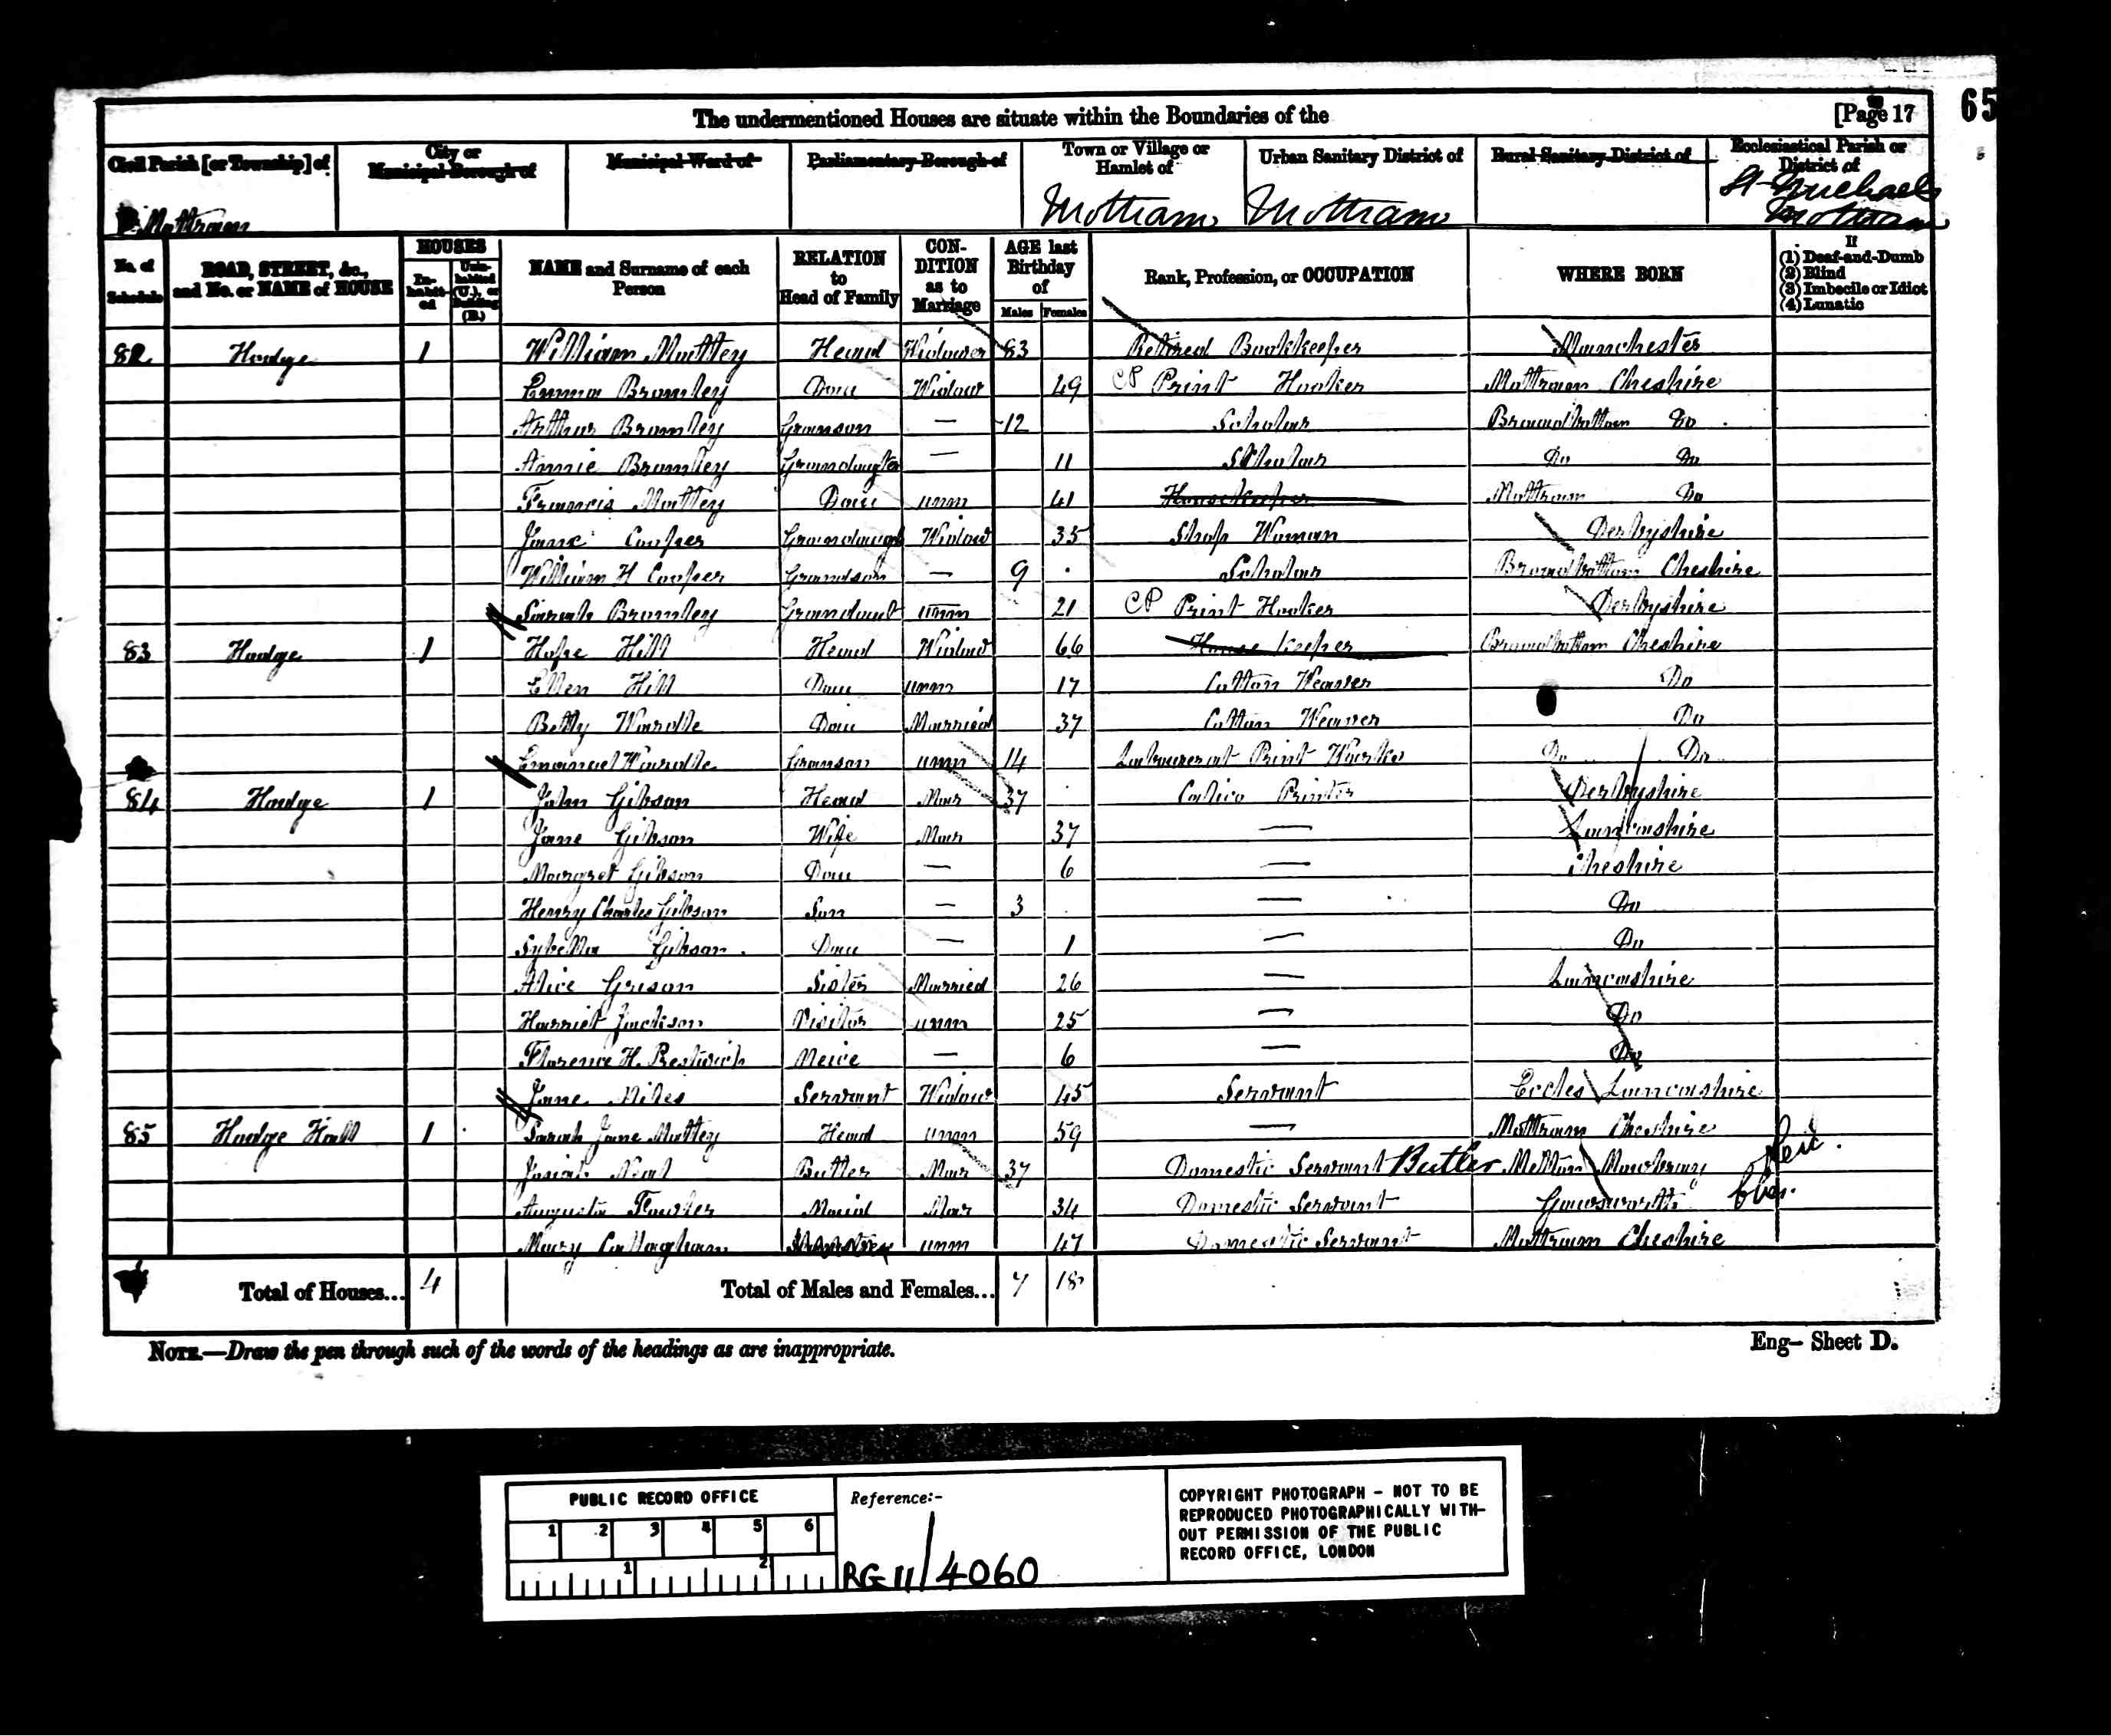 The undermentioned Houses are situate within the Boundaries of the [Page 17 65
Civil Parish [or Township] of City or Municipal Borough of Municipal Ward of Parliamentary Borough of Town or Village or Hamlet of Urban Sanitary District of Rural Sanitary District of Ecclesiastical Parish or District of
Mottram Mottram Mottram St Michaels Mottram
No. of Schedule ROAD, STREET, &c., and No. or NAME of HOUSE HOUSES Inhabited Uninhabited (U.), or Building (B.) NAME and Surname of each Person RELATION to Head of Family CONDITION as to Marriage AGE last Birthday of Males Females Rank, Profession, or OCCUPATION WHERE BORN If (1) Deaf-and-Dumb (2) Blind (3) Imbecile or Idiot (4) Lunatic
82 Hodge 1 William Mottley Head Widower 83 Retired Bookkeeper Manchester
Emma Bromley Dau Widow 49 CP Print Hooker Mottram Cheshire
Arthur Bromley Granson — 12 Scholar Broadbottom Do
Annie Bromley Grandaugter — 11 Scholar Do Do
Francis Mottley Dau unm 41 Housekeeper Mottram Do
Jane Cooper Widow 35 Shop Woman Derbyshire
William H Cooper Grandson — 9 Scholar Broadbottom Cheshire
Sarah Bromley Grandaut unm 21 CP Print Hooker Derbyshire
83 Hodge 1 Hope Hill Head Widow 66 House Keeper Broadbottom Cheshire
Ellen Hill Dau unm 17 Cotton Weaver Do
Betty Dau Married 37 Cotton Weaver Do
Emanuel Granson unm 14 Labourer at Print Works Do Do
84 Hodge 1 John Gibson Head Mar 37 Calico Printer Derbyshire
Jane Gibson Wife Mar 37 — Lancashire
Margret Gibson Dau — 6 — Cheshire
Henry Charles Gibson Son — 3 — Do
Sybella Gibson Dau — 1 — Do
Alice Sister Married 26 — Lancashire
Harriet Jackson Visitor unm 25 — Do
Florence H. Prestwich Neice — 6 — Do
Jane Servant Widow 45 Servant Eccles Lancashire
85 Hodge Hall 1 Sarah Jane Mottley Head unm 59 — Mottram Cheshire
Josiah Neal Butler Mar 37 Domestic Servant Butler Melton Mowbray Leic.
Augusta Fowler Maid Mar 34 Domestic Servant Gawsworth Ches.
Mary Callaghan unm 47 Domestic Servant Mottram Cheshire
Total of Houses... 4 Total of Males and Females... 7 18
NOTE.—Draw the pen through such of the words of the headings as are inappropriate. Eng— Sheet D.
PUBLIC RECORD OFFICE
1 2 3 4 5 6
1 2
Reference:-
RG 11/4060
COPYRIGHT PHOTOGRAPH - NOT TO BE
REPRODUCED PHOTOGRAPHICALLY WITH-
OUT PERMISSION OF THE PUBLIC
RECORD OFFICE, LONDON